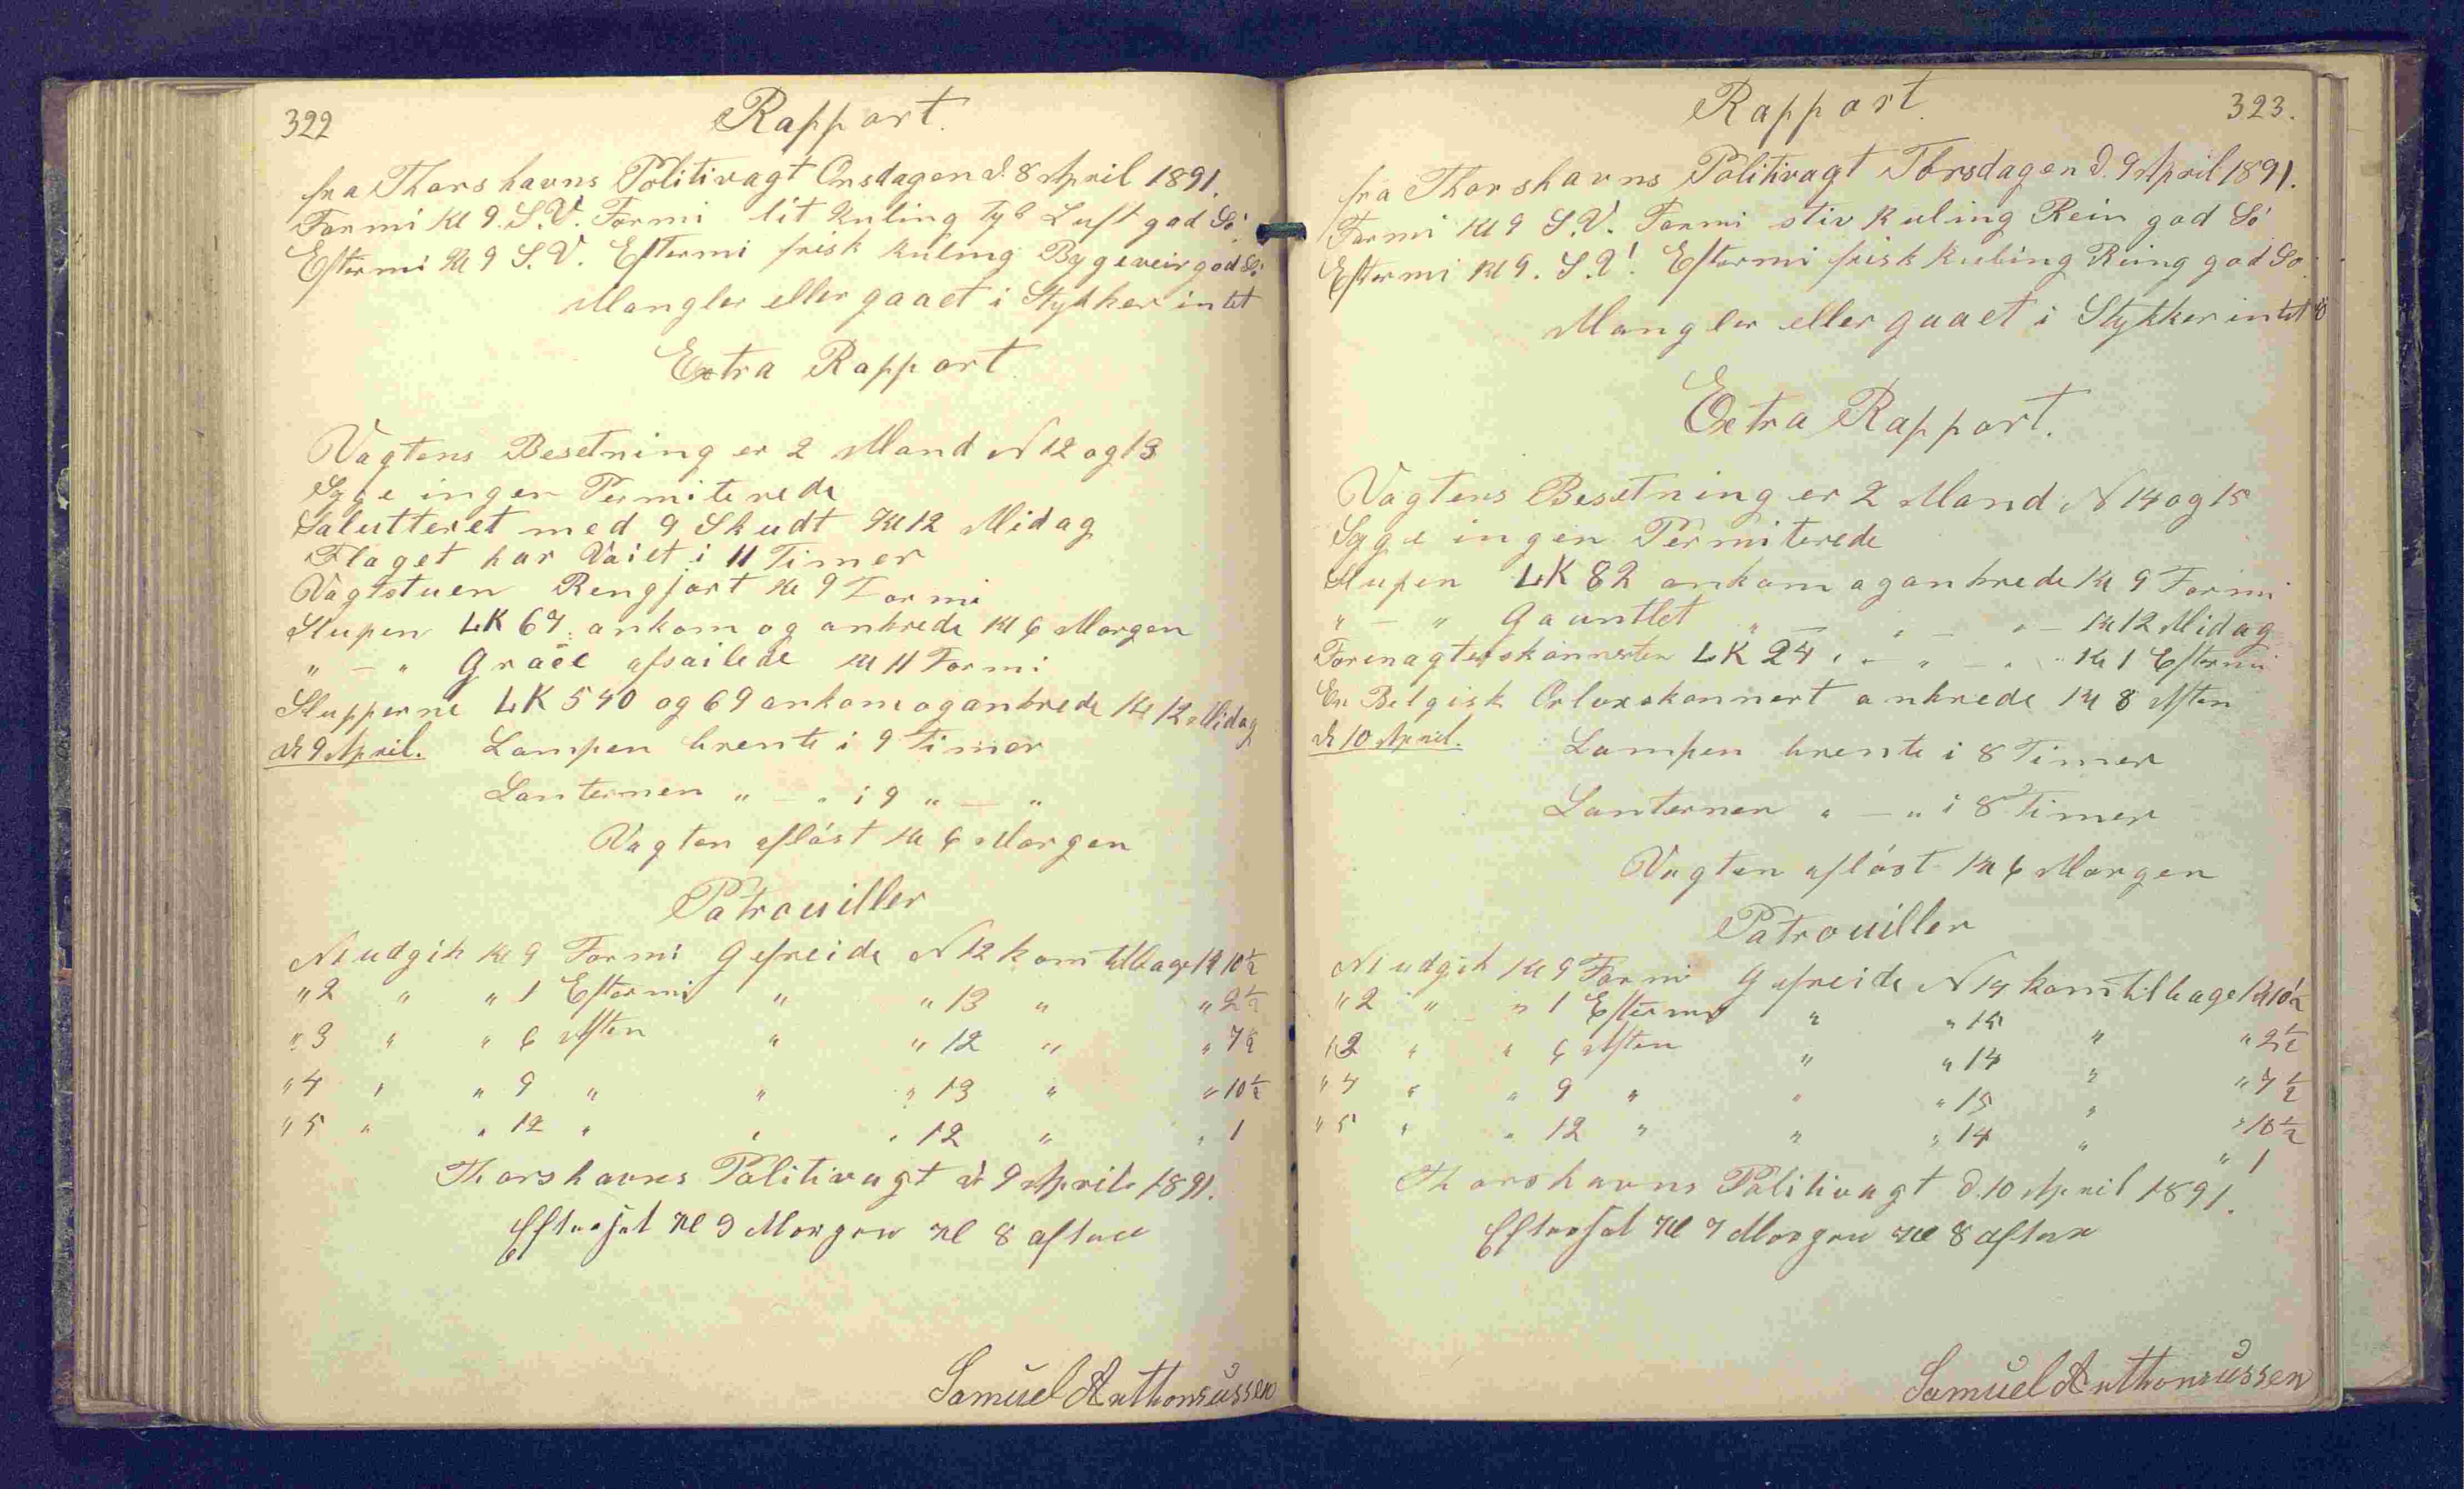 322
Rapport.
fra Thorshavns Politivagt Onsdagen d. 8 April 1891.
Formi Kl 9. S.V. Formi lit Kuling tyk Luft god Sö
Eftermi Kl 9 S.V. Eftermi frisk Kuling Bygeveir god Sö
Mangler eller gaaet i Stykker intet
Extra Rapport
Vagtens Besetning er 2 Mand N 12 og 13
Syge ingen Permiterede
Salutteret med 9 Skudt Kl 12 Midag
Flaget har Vaiet i 11 Timer
Vagtstuen Rengjort Kl 9 Formi
Slupen LK 67. ankom og ankrede Kl 6 Morgen
" — " Grace afsailede Kl 11 Formi
Slupperne LK 540 og 69 ankom og ankrede Kl 12 Midag
d 9 April. Lampen brente i 9 Timer
Lanternen " — " i 9 " — "
Vagten aflöst Kl 6 Morgen
Patrouiller
N1 udgik Kl 9 Formi Gefreide N 12 kom tilbage Kl 10½
" 2 " " 1 Eftermi " " 13 " " 2½
" 3 " " 6 Aften " " 12 " " 7½
" 4 " " 9 " " " 13 " " 10½
" 5 " " 12 " " " 12 " " 1
Thorshavns Politivagt d 9 April 1891.
Efterset Kl 9 Morgen Kl 8 aften
Samuel Anthoniussen
323.
Rapport.
fra Thorshavns Politivagt Torsdagen d. 9 April 1891.
Formi Kl 9 S.V. Formi stiv Kuling Rein god Sö
Eftermi Kl 9. S.V. Eftermi frisk Kuling Reing god Sö
Mangler eller gaaet i Stykker intet
Extra Rapport.
Vagtens Besetning er 2 Mand N 14 og 15
Syge ingen Permiterede
Slupen LK 82 ankom og ankrede Kl 9 Formi
" — " Gauntlet " — " — " — Kl 12 Midag
LK 24 " — " — " Kl 1 Eftermi
En Belgisk Orloxskonnert ankrede Kl 8 Aften
d 10 April. Lampen brente i 8 Timer
Lanternen " — " i 8 Timer
Vagten aflöst Kl 6 Morgen
Patrouiller
N1 udgik Kl 9 Formi Gefreide N 14 kom tilbage Kl 10½
" 2 " — " 1 Eftermi " " 15 " " 2½
" 3 " " 6 Aften " " 14 " " 7½
" 4 " " 9 " " " 15 " " 10½
" 5 " " 12 " " " 14 " " 1
Thorshavns Politivagt d. 10 April 1891.
Efterset Kl 7 Morgen Kl 8 aften
Samuel Anthoniussen